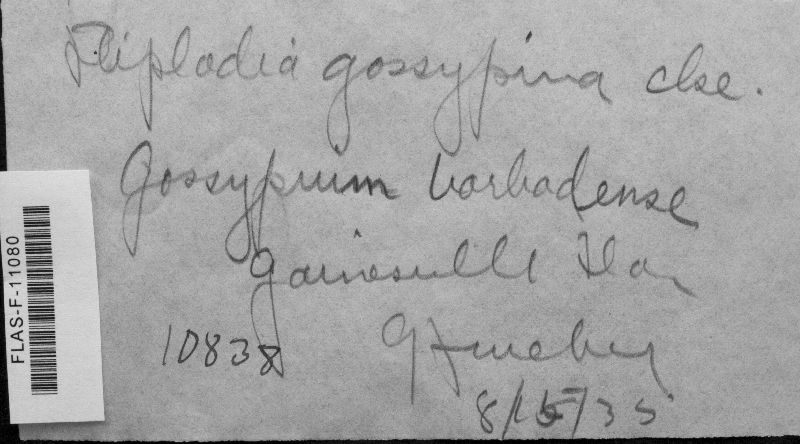 Diplodia gossypina cke.
Gossypium barbadense
Gainesville Fla
10838
8/15/35
FLAS-F-11080